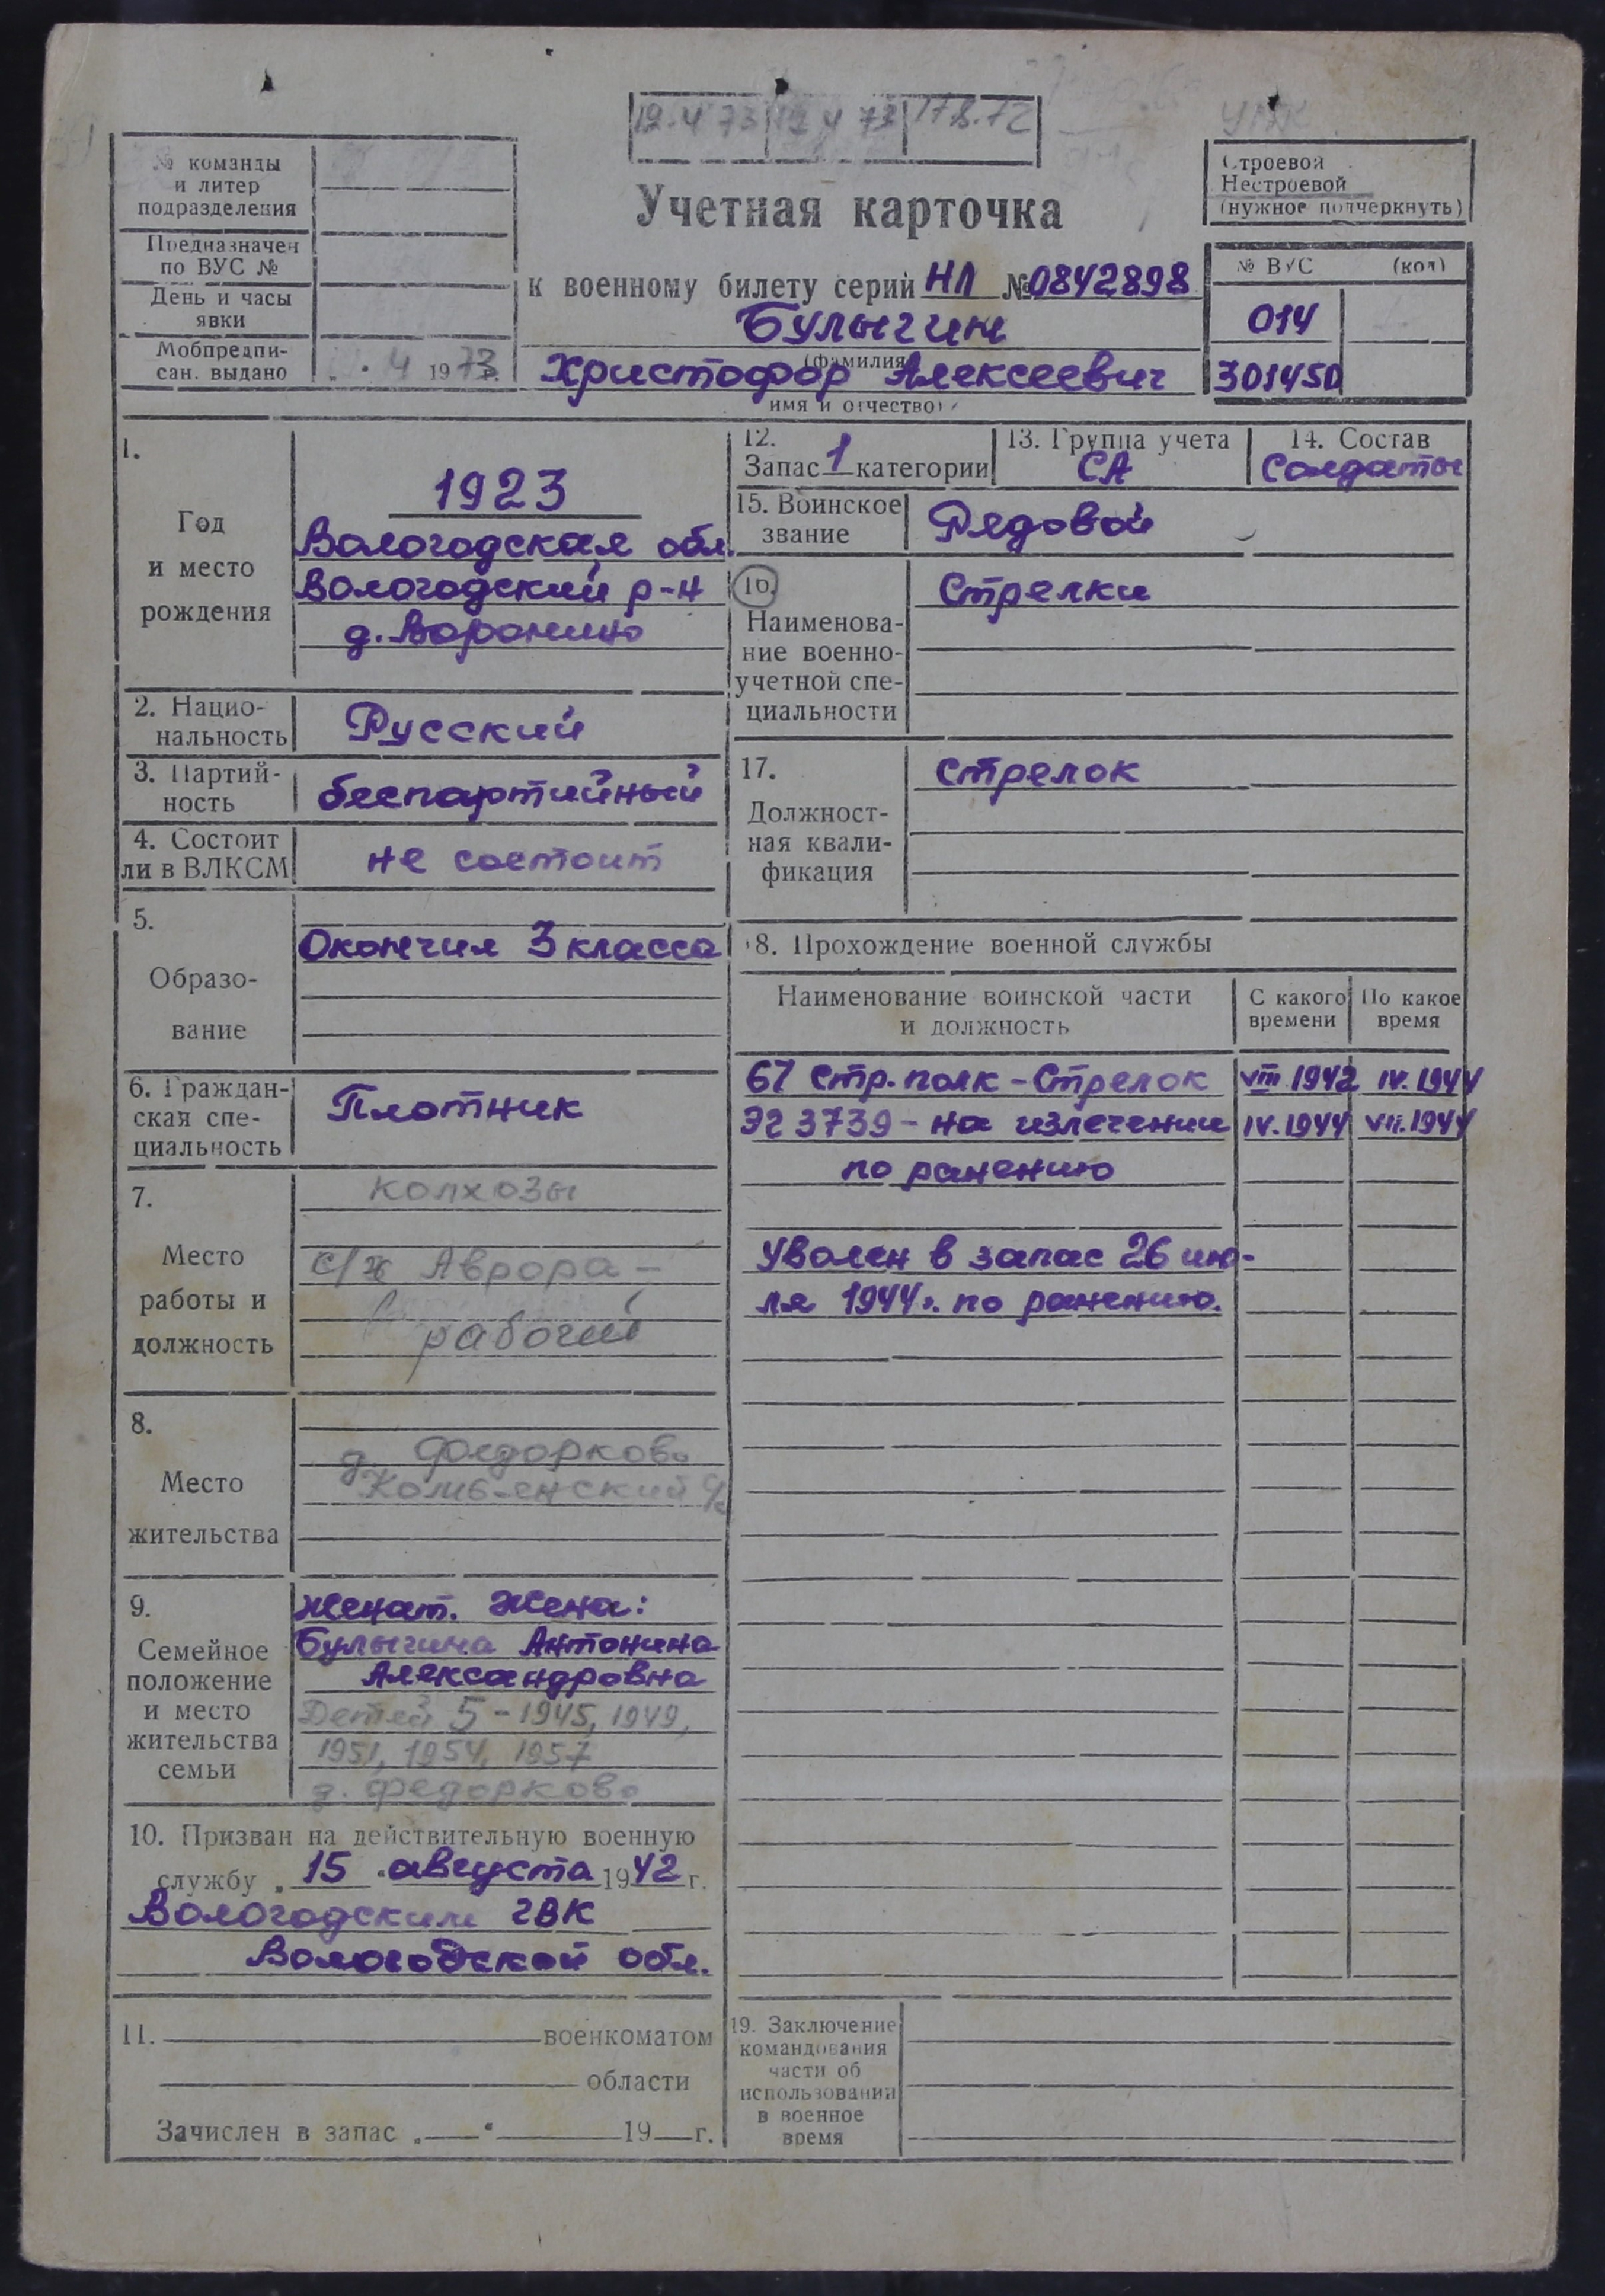 19.4 73 12 4 73 17.8.72
№ команды
и литер
подразделения
Предназначен
по ВУС №
День и часы
явки
Мобпредпи-
сан. выдано
4 1973 г.
Учетная карточка
к военному билету серии НЛ № 0842898
Булыгин
(фамилия)
Христофор Алексеевич
имя и отчество)
Строевой
Нестроевой
(нужное подчеркнуть)
№ ВУС (код)
014
301450
1.
Год
и место
рождения
1923
Вологодская обл.
Вологодский р-н
д. Воронино
2. Нацио-
нальность
Русский
3. Партий-
ность
беспартийный
4. Состоит
ли в ВЛКСМ
не состоит
5.
Образо-
вание
Окончил 3 класса
6. Граждан-
ская спе-
циальность
Плотник
7.
Место
работы и
должность
колхозы
с/х Аврора -
рабочий
8.
Место
жительства
д. Федорково
9.
Семейное
положение
и место
жительства
семьи
Женат. Жена:
Булыгина Антонина
Александровна
Детей 5 - 1945, 1949,
1951, 1954, 1957
д. Федорково
10. Призван на действительную военную
службу „15“ августа 1942 г.
Вологодским ГВК
Вологодской обл.
11. военкоматом
области
Зачислен в запас „ “ 19 г.
12.
Запас 1 категории
13. Группа учета
СА
14. Состав
Солдаты
15. Воинское
звание
Рядовой
16.
Наименова-
ние военно-
учетной спе-
циальности
Стрелки
17.
Должност-
ная квали-
фикация
стрелок
18. Прохождение военной службы
Наименование воинской части
и должность
С какого
времени
По какое
время
67 Стр. полк - Стрелок VIII.1942 IV.1944
ЭГ 3739 - на излечении IV.1944 VII.1944
по ранению
Уволен в запас 26 ию-
ля 1944г. по ранению.
19. Заключение
командования
части об
использовании
в военное
время